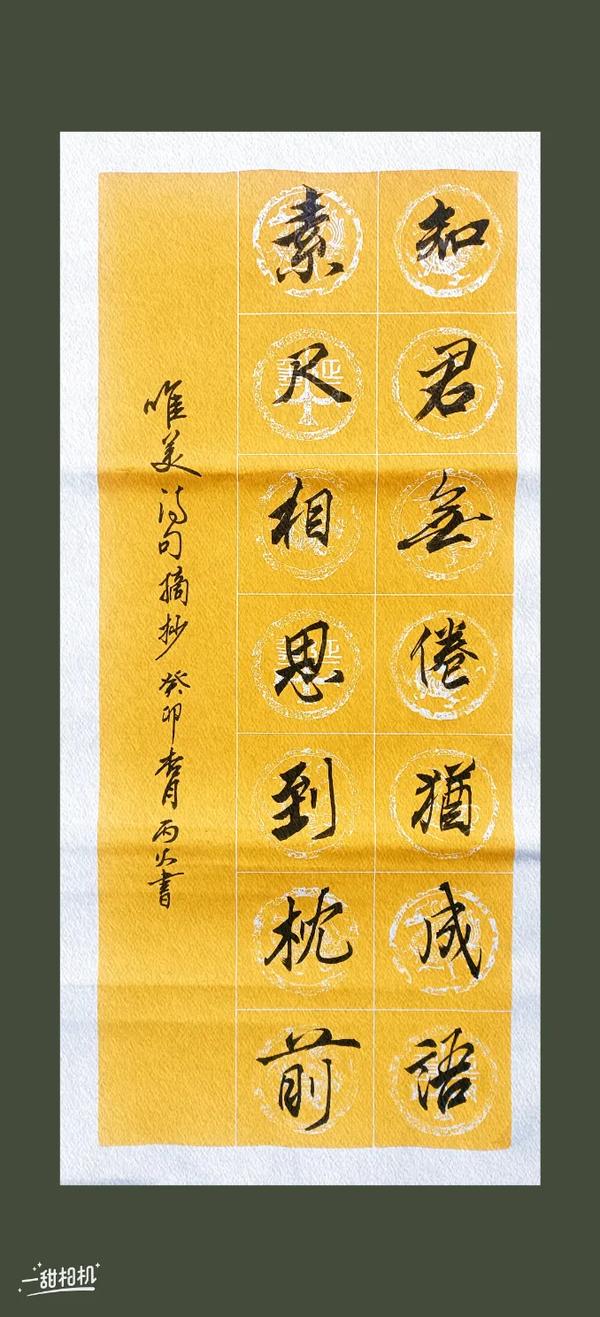 知君無倦猶成語
素尺相思到枕前
唯美詩句摘抄 癸卯 丙火書
一甜相机